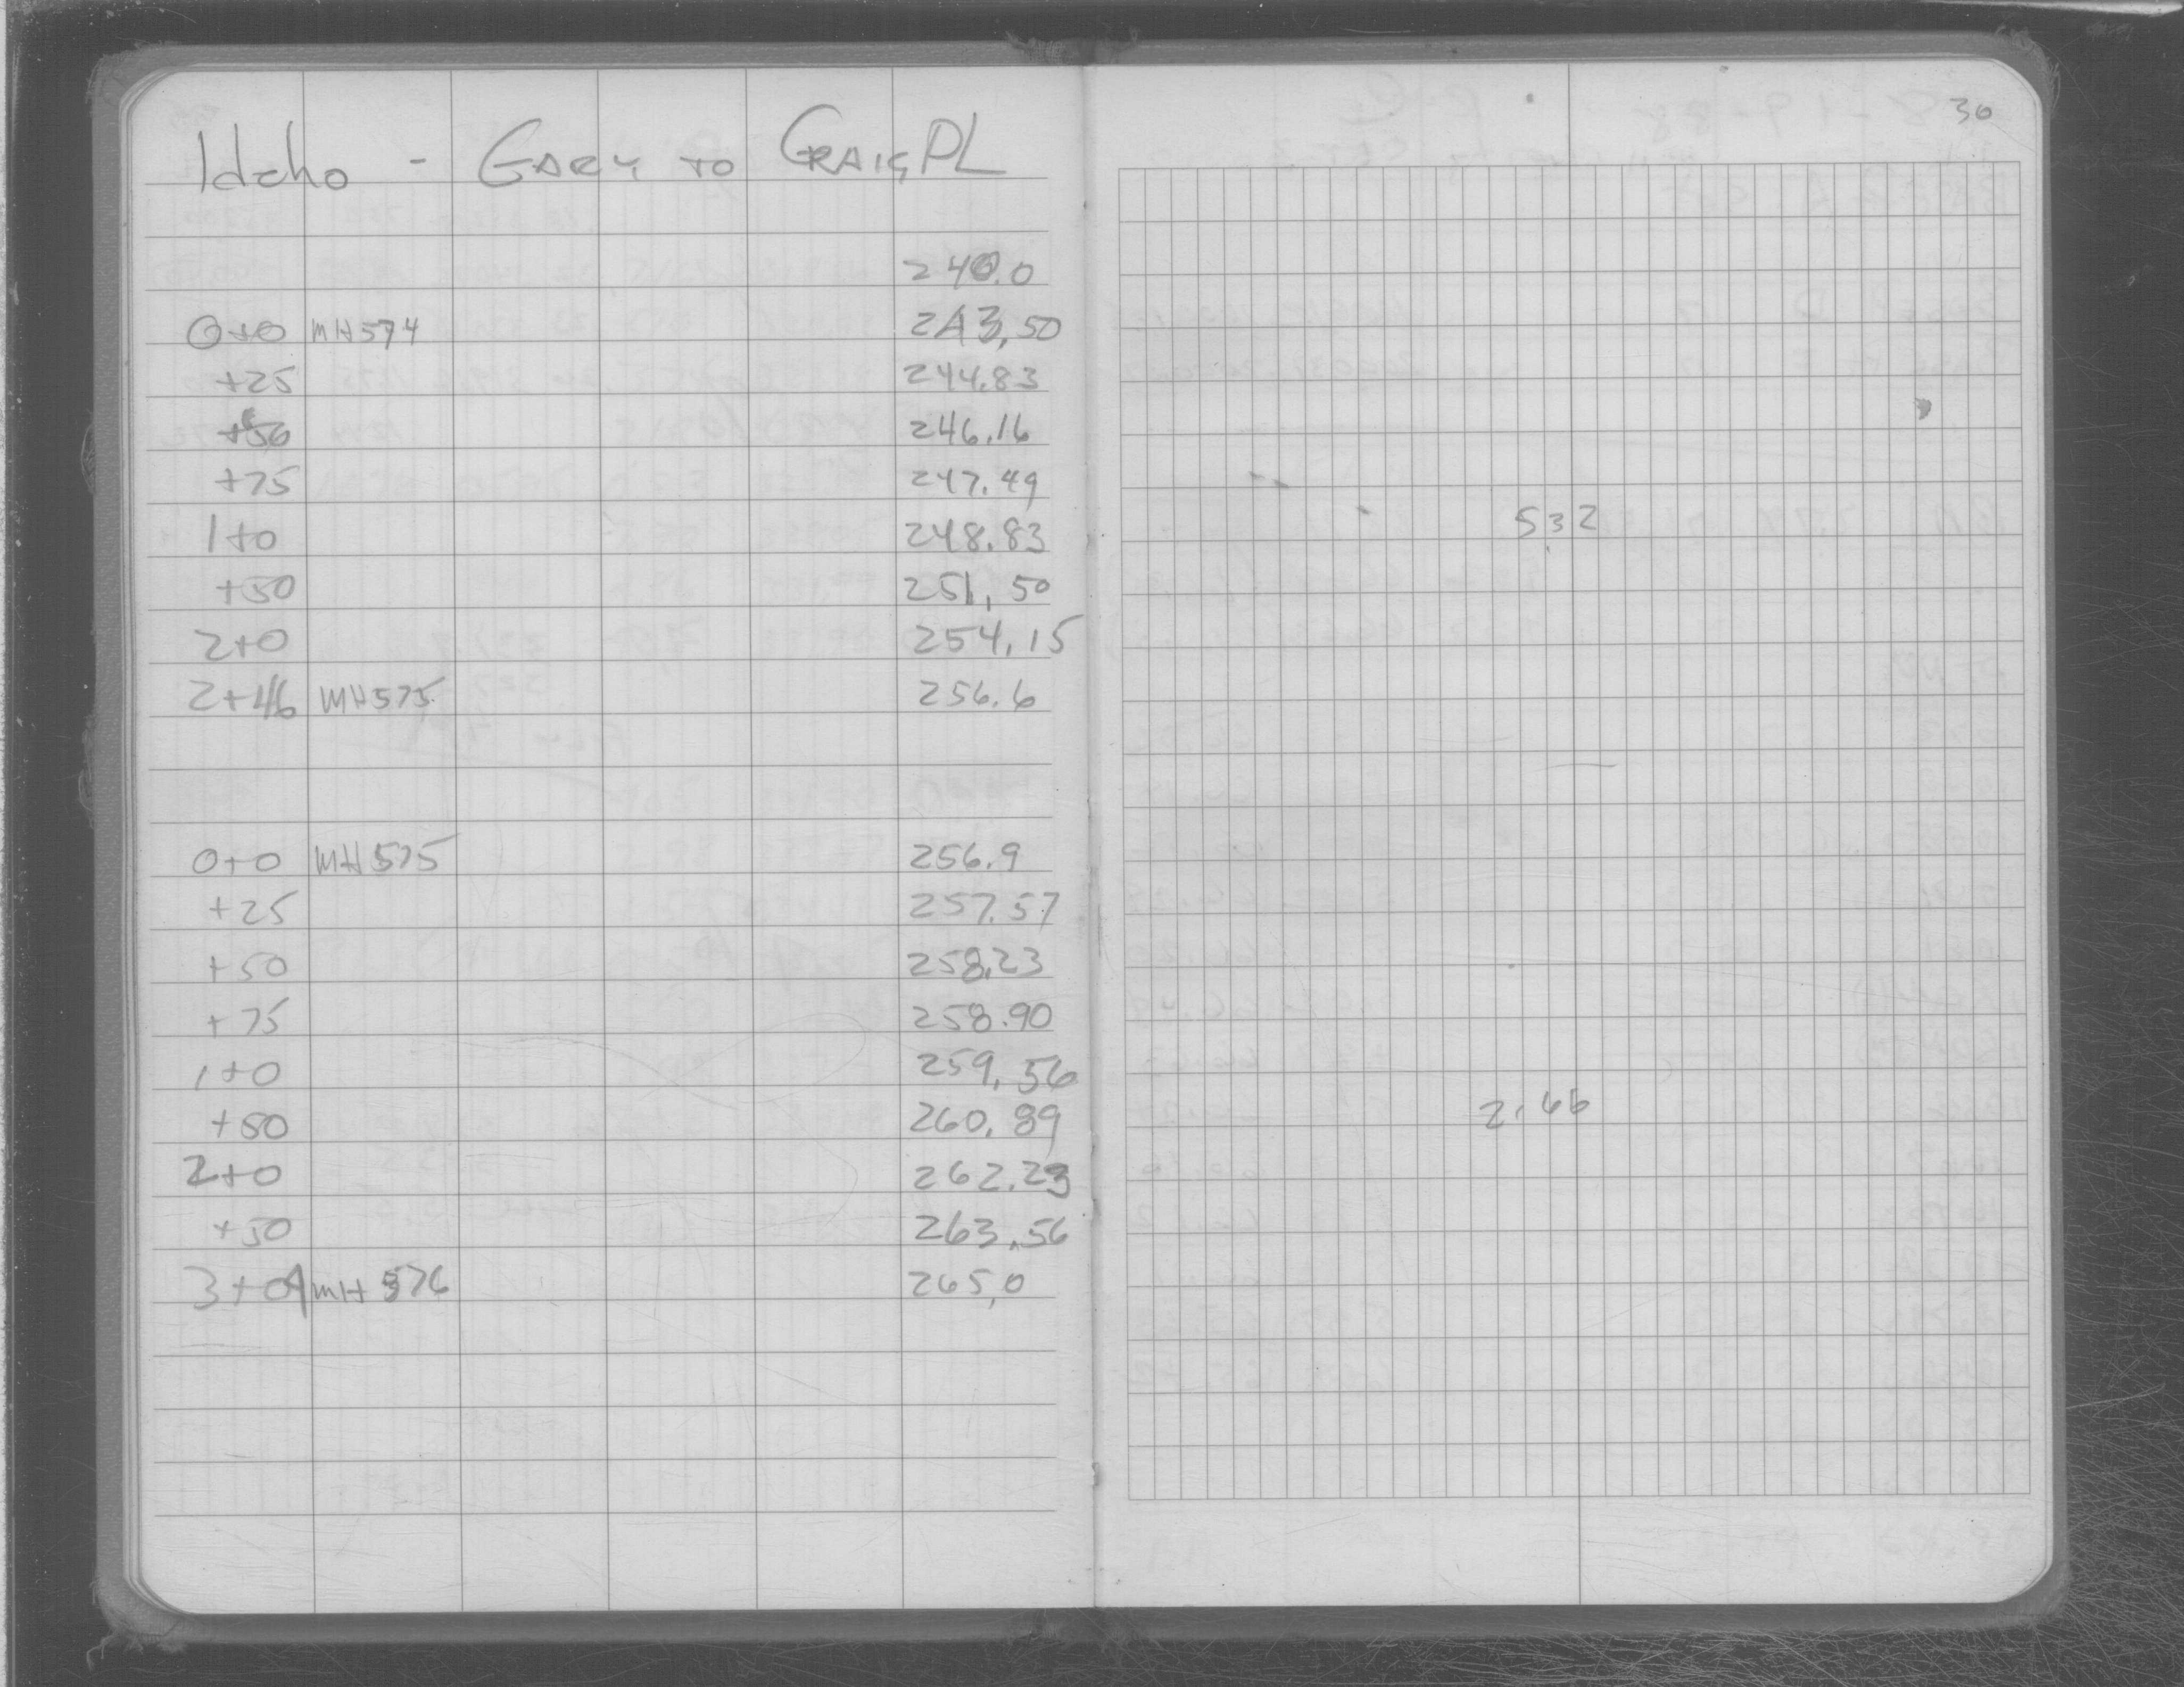 Idaho - GARY TO CRAIG PL
240.0
0+0 MH574 243.50
+25 244.83
+50 246.16
+75 247.49
1+0 248.83
+50 251.50
2+0 254.15
2+46 MH575 256.6
0+0 MH575 256.9
+25 257.57
+50 258.23
+75 258.90
1+0 259.56
+50 260.89
2+0 262.23
+50 263.56
3+04 MH 576 265.0
30
5.32
2.66